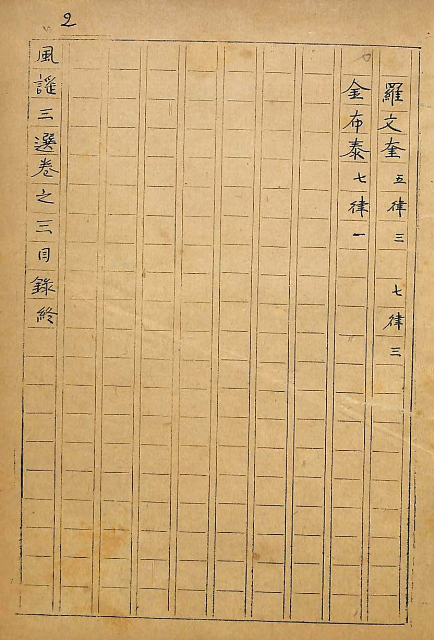 2
羅文奎 五律三 七律三
金布泰 七律一
風謠三選卷之三目錄終